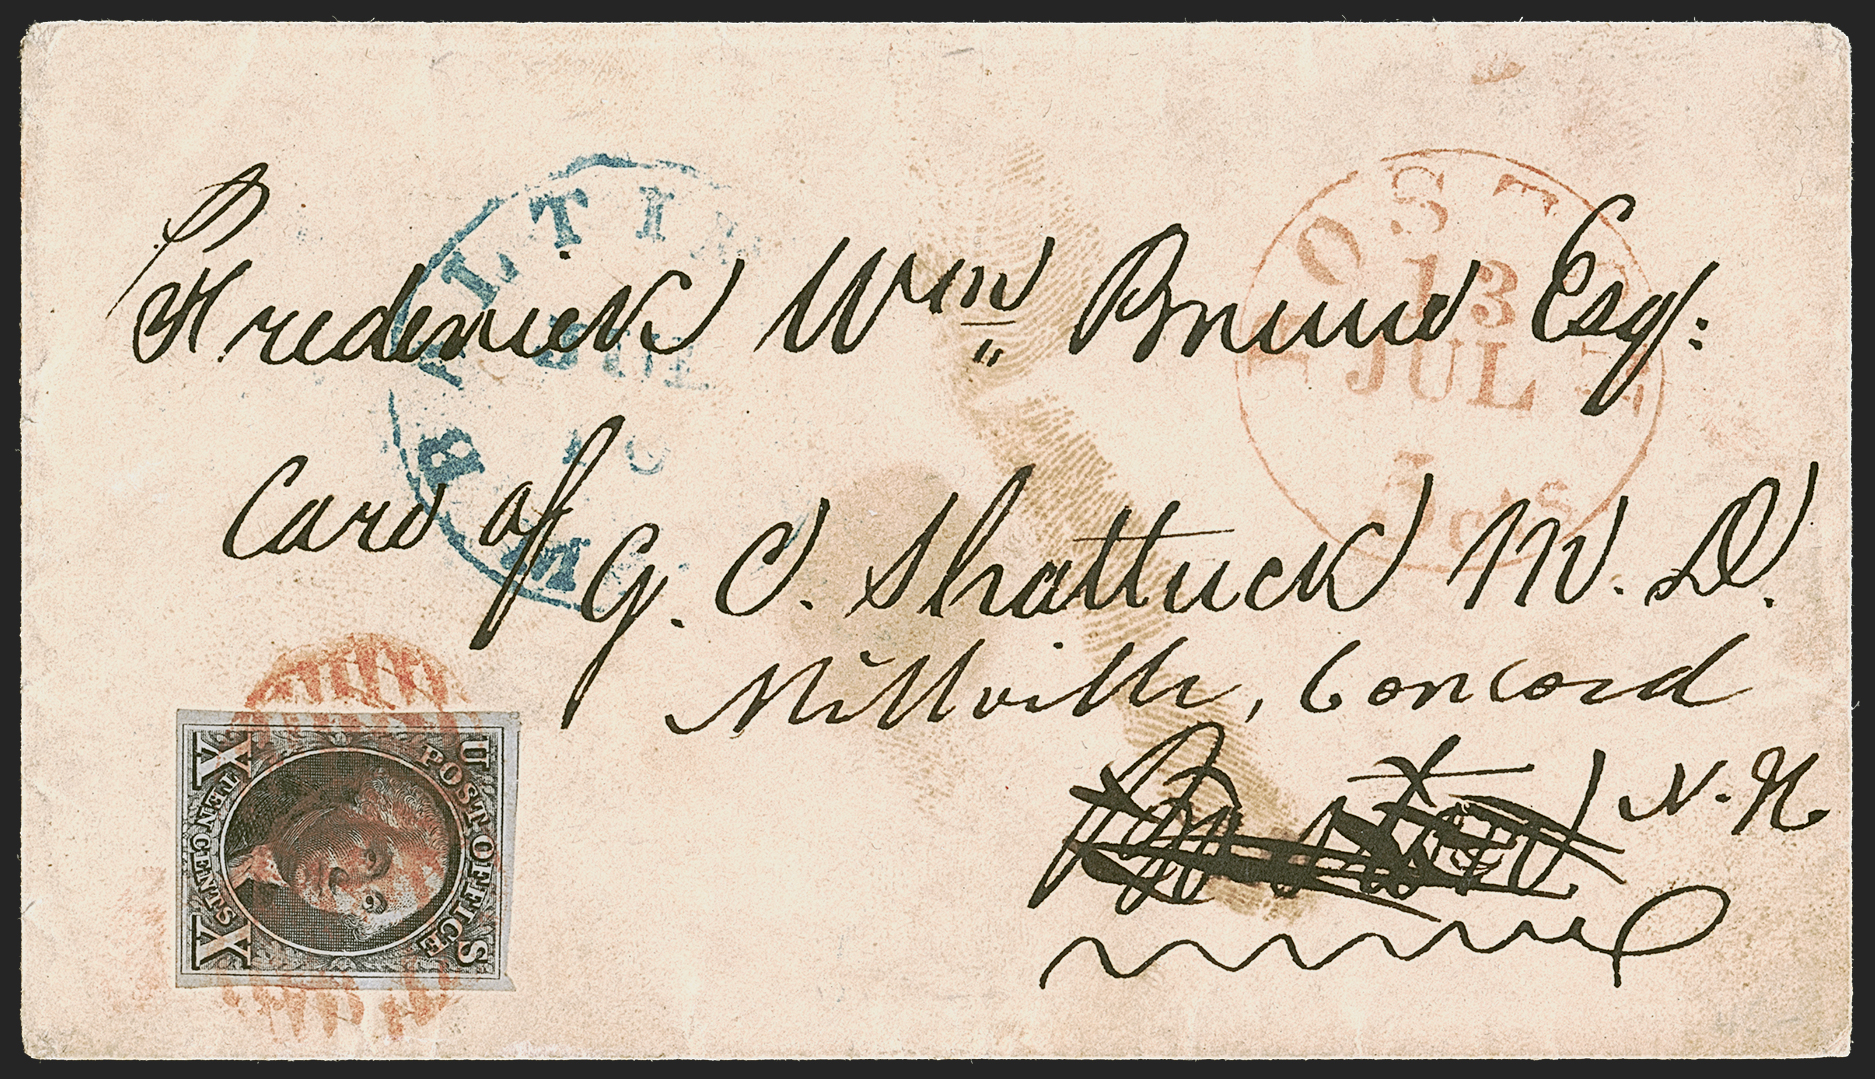 Frederick Wm Brune Esq:
Card of
G. C. Shattuck M. D.
Millville, Concord
N. H
BALTIM
JUL
MD
BOST
13
JUL
5 cts
U S
POST OFFICE
X X
TEN CENTS